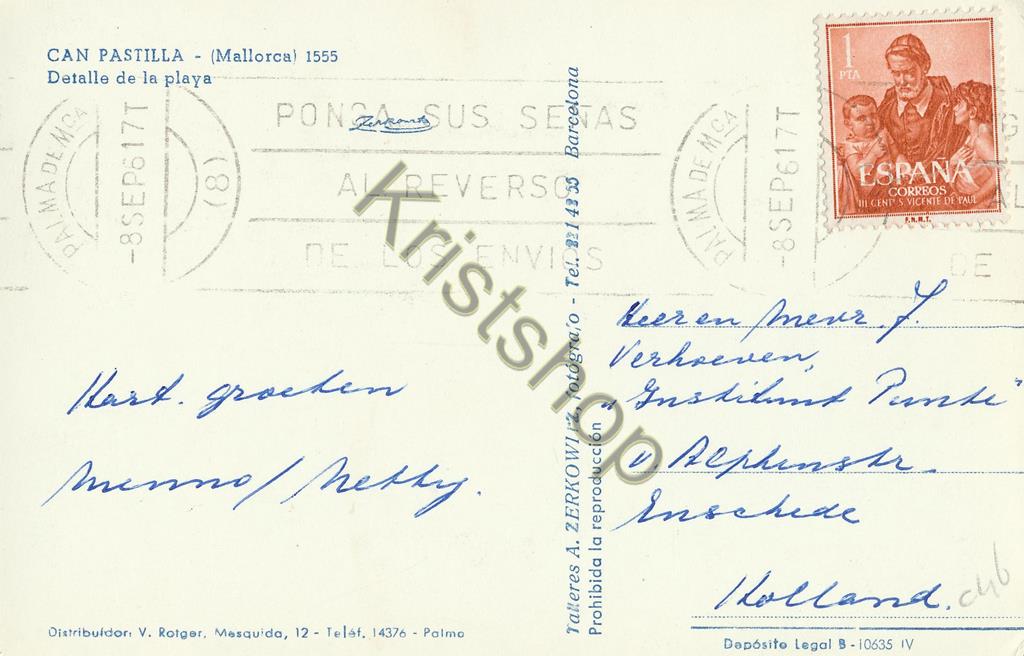 CAN PASTILLA - (Mallorca) 1555
Detalle de la playa
Zerkowitz
PALMA DE Mca
-8SEP617T
(8)
PONGA SUS SEÑAS
AL REVERSO
DE LOS ENVIOS
PALMA DE Mca
-8SEP617T
AL
DE
1
PTA
ESPAÑA
CORREOS
III CENTº S. VICENTE DE PAUL
F.N.M.T.
Hart. groeten
Menno / Netty.
Talleres A. ZERKOWITZ, fotógrafo - Tel. 2214355 Barcelona
Prohibida la reproducción
Heer en Mevr. J.
Verhoeven,
"Instituut Punte"
v. Alphenstr.
Enschede
Holland.
Distribuidor: V. Rotger, Mesquida, 12 - Teléf. 14376 - Palma
Depósito Legal B - 10635 IV
Kristshop